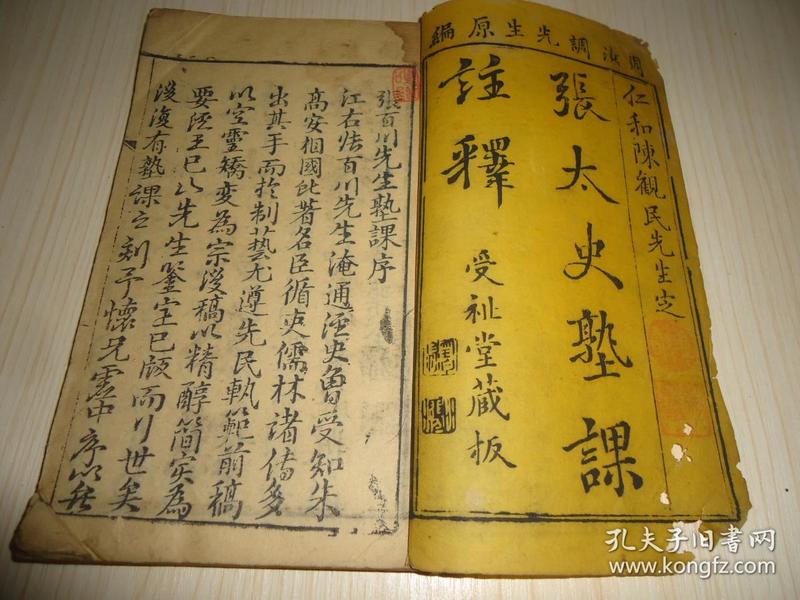 周汝調先生原編
仁和陳觀民先生定
張太史塾課
註釋
受祉堂藏板
張百川先生塾課序
江右張百川先生淹通經史曾受知朱
高安相國此著名臣循吏儒林諸傳多
出其手而於制藝尤遵先民軌範前稿
以空靈矯變為宗後稿以精醇簡實為
要陸王已以先生鑒定已版而行世矣
後復有塾課之刻予懷兄雲中序以
孔夫子旧书网
www.kongfz.com